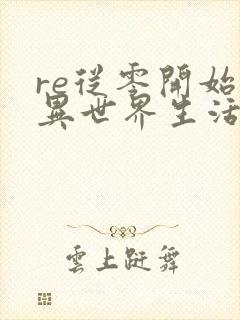 re從零開始
異世界生活
雲上跹舞